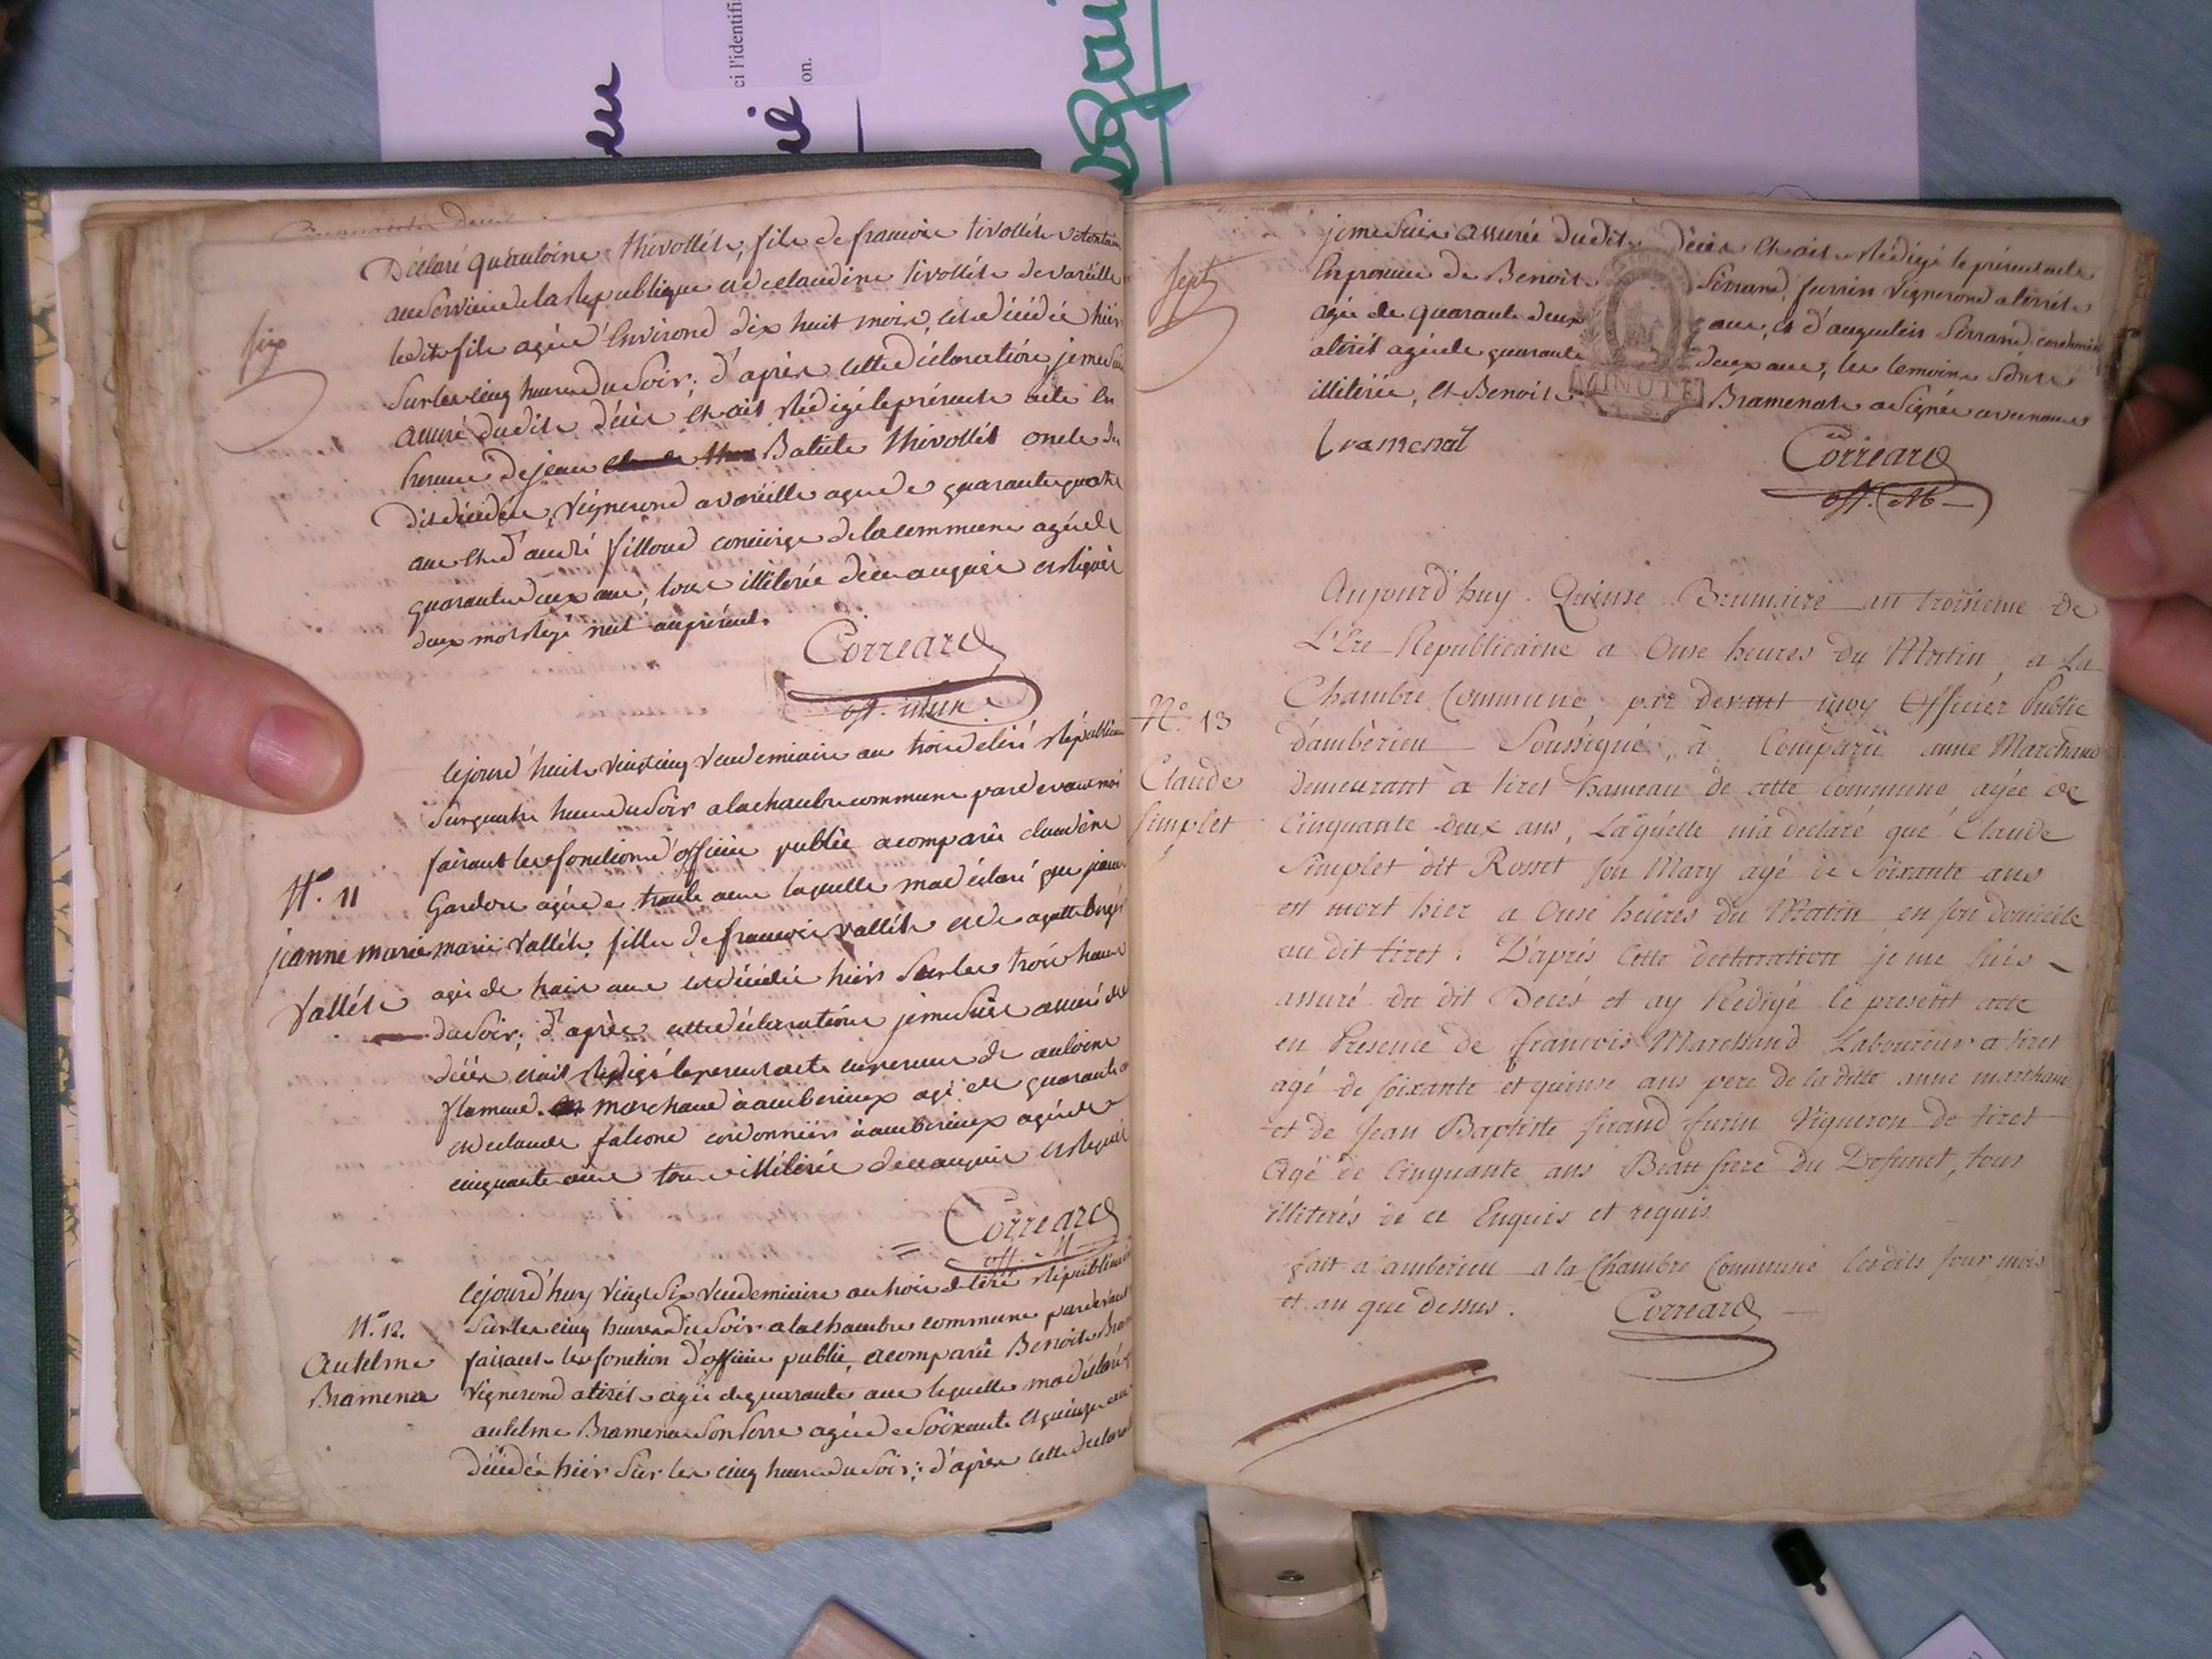 ci l'identifi
on.
six
Déclaré qu'antoine thivollét, fils de francois tivollét volontaire
au service de la Republique et de claudine tivollét de vareille
ledit fils agée d'Environd dix huit mois, est décédée hiér
Sur les cinq heures du Soir; d'aprèr cette déclaration, je me suis
assuré dudit décèr et ait rédigé le présent acte en
presence de jean Batiste thivollét oncle du
dit décédée, vignerond a vareille agée de quarante quatre
ans et d'andré filloud concierge de la commune agée de
quarante deux ans, tous illiterée de ce enquiér et requiér
deux mots rayé nul au présent.
Correard
off. mun.
N°. 11
jeanne marie
Vallét
Cejourd'huit vingt cinq vendemiaire an trois de l'eré républicain
Sur quatre heures du Soir a la chambre commune par devant moi
faisant les fonctiond d'officier public a comparue claudine
Gardon agée de trente ans laquelle m'a déclaré que jeanne
marie Vallét, fille de francois vallét et de agatte berger
agée de trois ans est décédée hiér Sur les trois heures
du Soir; d'aprèr cette déclaration je me Suis assuré du
décèr et ait rédigé le present acte en presence de antoine
flamend marchand à amberieux agé de quarante
et de claude falcond cordonniér à amberieux agée de
cinquante ans tous illiterée de ce enquis et requis
Correard
off. M
N°. 12.
Antelme
Bramena
Cejourd'huy vingt Six vendemiaire an trois de l'eré républicain
Sur les cinq heures du Soir a la chambre commune par devant
faisant les fonction d'officier public, a comparu Benoit Bra
vignerond a tirét agée de quarante ans lequelle m'a déclaré
antelme Bramena son agée de Soixante et quinze ans
décédée hiér Sur les cinq heures du Soir; d'aprèr cette declara
sept
je me Suis assurée dudit décèr et ait rédigé le présent acte
En presence de Benoit Sirrand furrin vignerond a tirét
agée de quarante deux ans, et d'augustin Sirrand
a tirét agée de quarante deux ans, les temoins Sont
illiterée, et Benoit Bramenat a Signée avec nous
MINUTE
bramenat
Correard
off. M
N°. 13
Claude
Simplet
Aujourd'huy Quinse Brumaire an troisieme de
L'Ere Republicaine a Onse heures du Matin, a La
Chambre Commune par devant moy Officier Public
d'ambérieu Soussigné, à Comparu anne Marchand
demeurant à tiret hameau de cette commune agée de
Cinquante deux ans, Laquelle m'a declaré que Claude
Simplet dit Rosset son Mary agé de Soixante ans
est mort hier a Onse heures du Matin en son domicile
au dit tiret. D'aprés Cette declaration je me suis
assuré du dit Decés et ay Redigé le present acte
en Presence de francois Marchand Laboureur a tiret
agé de soixante et quinse ans pere de la ditte anne marchand
et de Jean Baptiste sirand furin Vigneron de tiret
Agé de Cinquante ans Beau frere du Defunct, tous
illiterés de ce Enquis et requis
fait a amberieu a la Chambre Commune lesdits jour mois
et an que dessus.
Correard